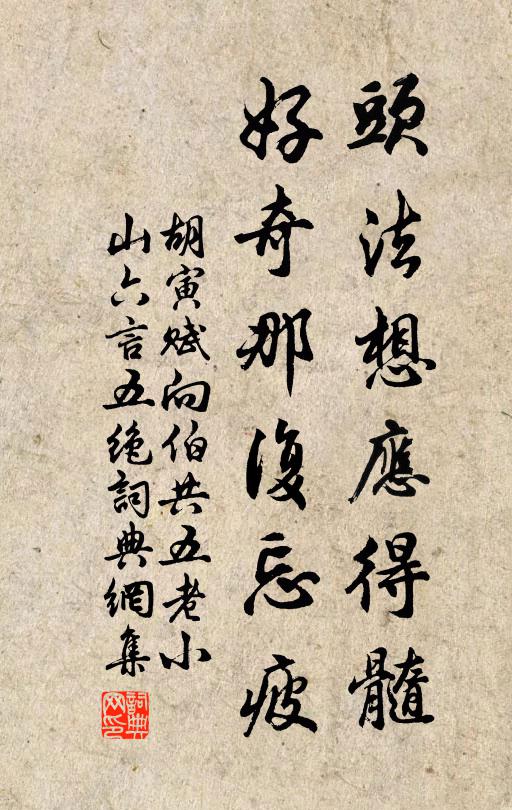 頭法想應得髓
好奇那復忘疲
胡寅賦向伯共五老小
山六言五絶詞典網集
詞典网印